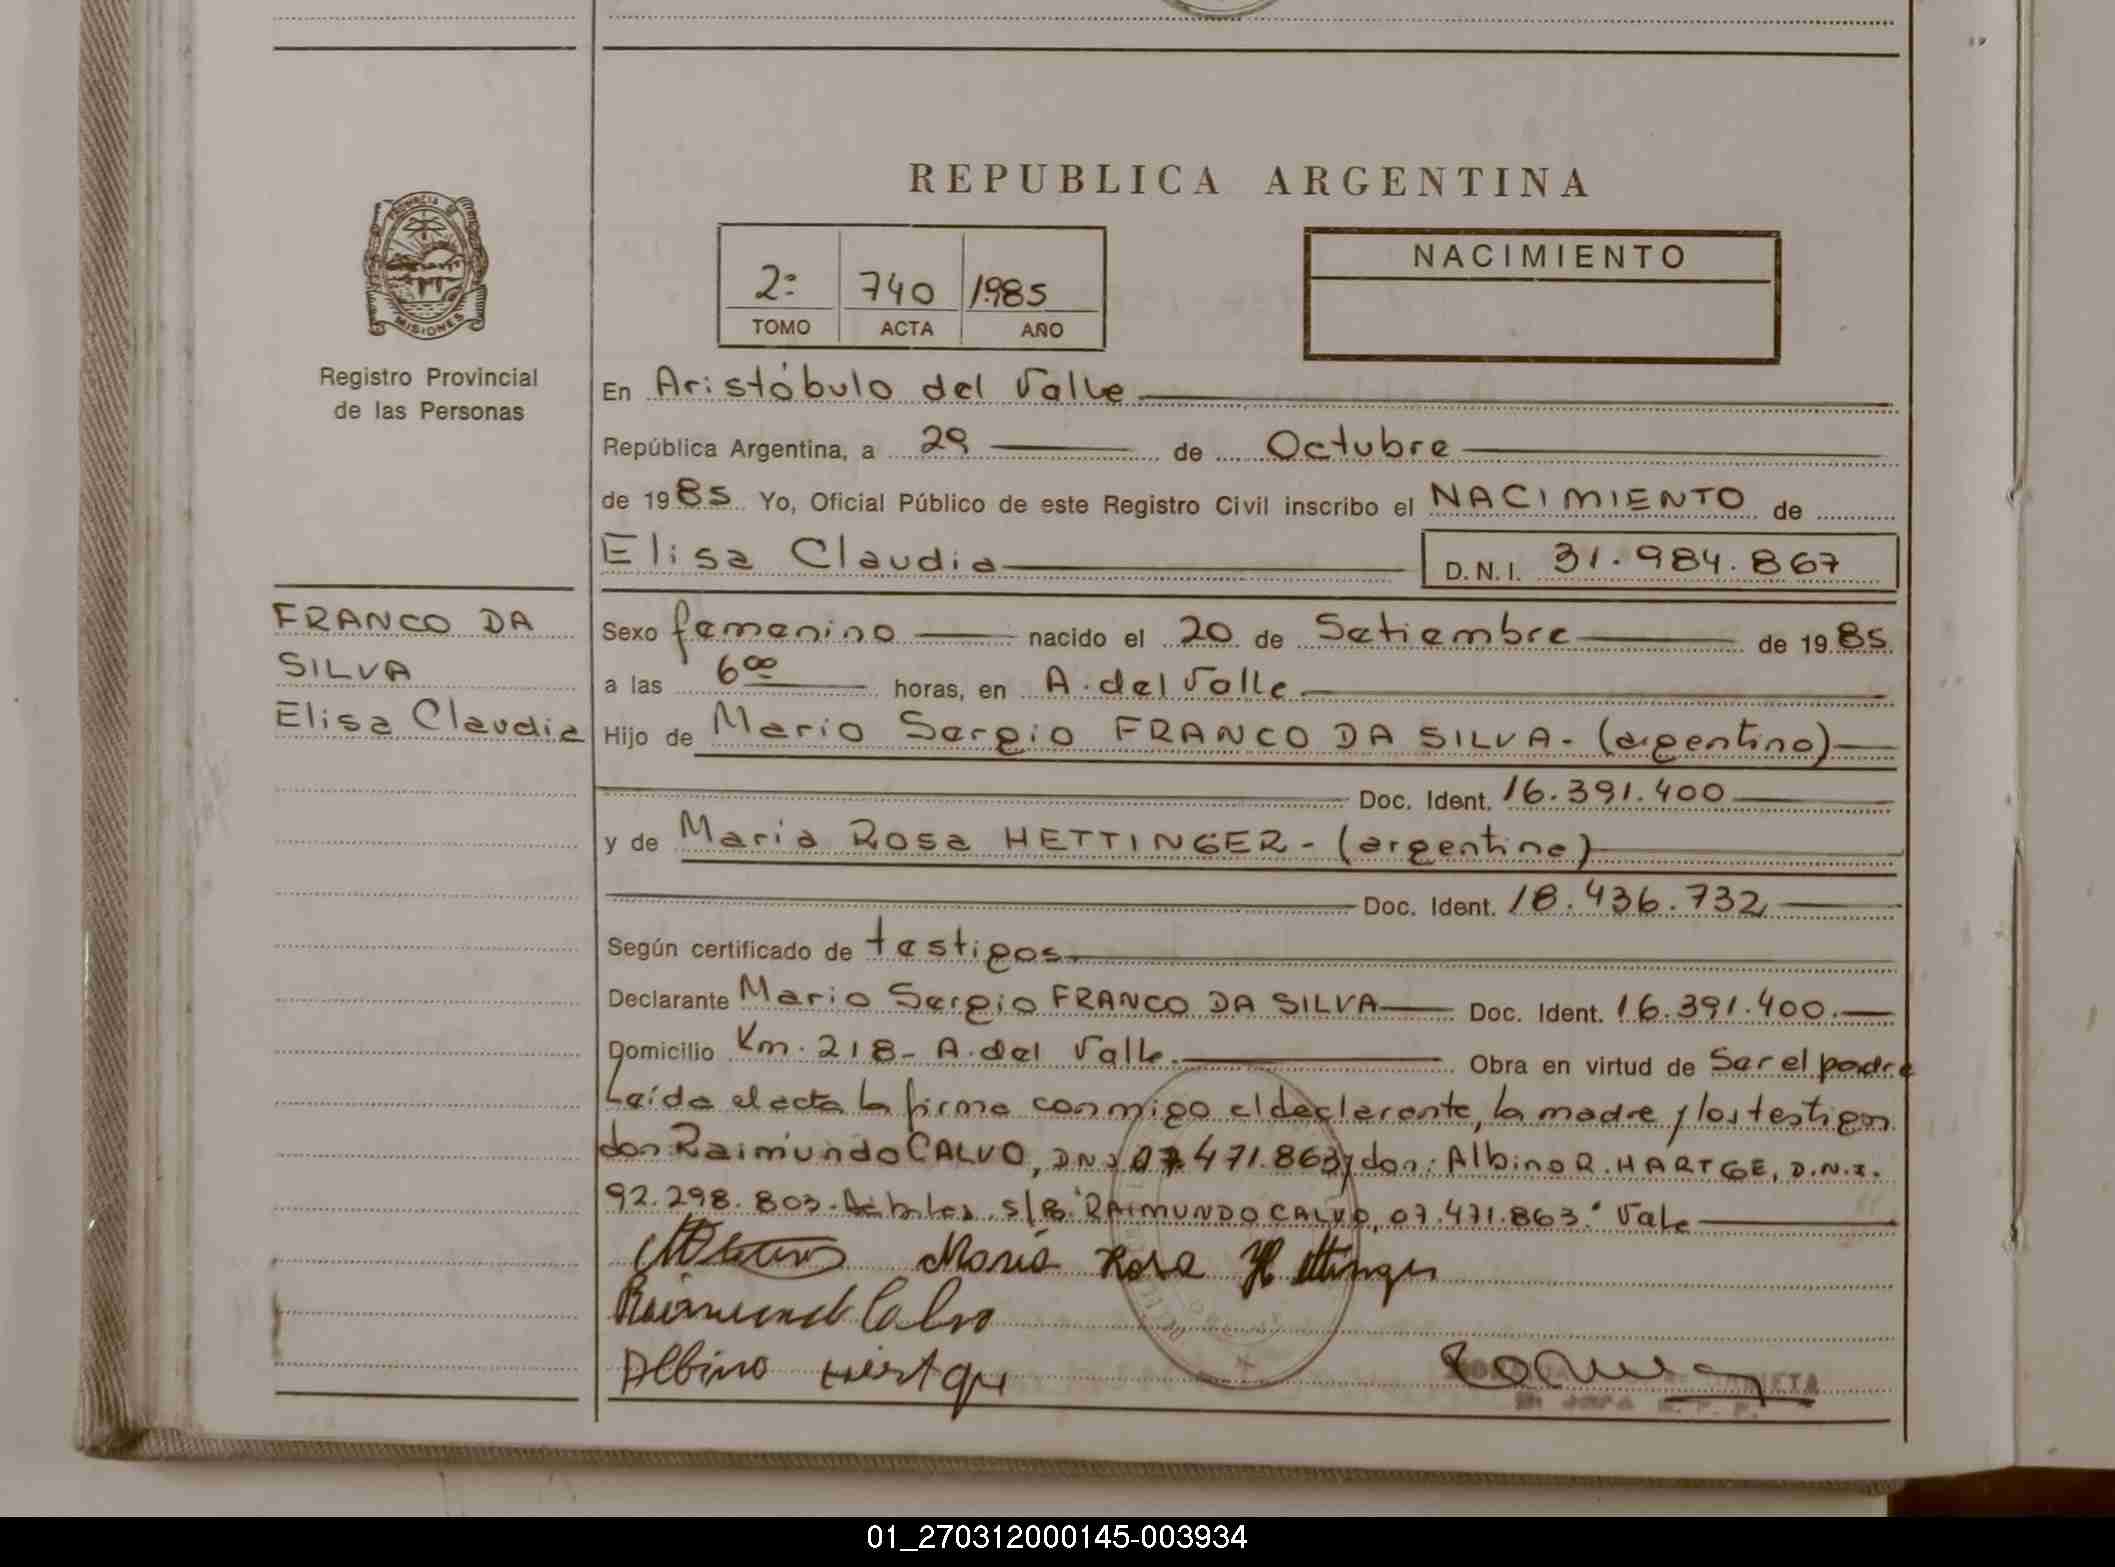 REPUBLICA ARGENTINA
2º 740 1985
TOMO ACTA AÑO
NACIMIENTO
PROVINCIA DE
MISIONES
Registro Provincial
de las Personas
En Aristóbulo del Valle
República Argentina, a 29 de Octubre
de 1985 Yo, Oficial Público de este Registro Civil inscribo el NACIMIENTO de
Elisa Claudia D.N.I. 31.984.867
FRANCO DA
SILVA
Elisa Claudia
Sexo femenino nacido el 20 de Setiembre de 1985.
a las 6 00 horas, en A. del Valle
Hijo de Mario Sergio FRANCO DA SILVA - (argentino)
Doc. Ident. 16.391.400
y de Maria Rosa HETTINGER - (argentina)
Doc. Ident. 18.436.732
Según certificado de testigos
Declarante Mario Sergio FRANCO DA SILVA Doc. Ident. 16.391.400.
Domicilio Km. 218 - A. del Valle. Obra en virtud de Ser el padre
Leída el acta la firma conmigo el declarante, la madre y los testigos
don: Raimundo CALVO, DNI 07.471.863 y don: Albino R. HARTGE, D.N.I.
92.298.803. S/B: "RAIMUNDO CALVO, 07.471.863." Vale
María Rosa Hettinger
Raimundo Calvo
Albino Hartge
01_270312000145-003934